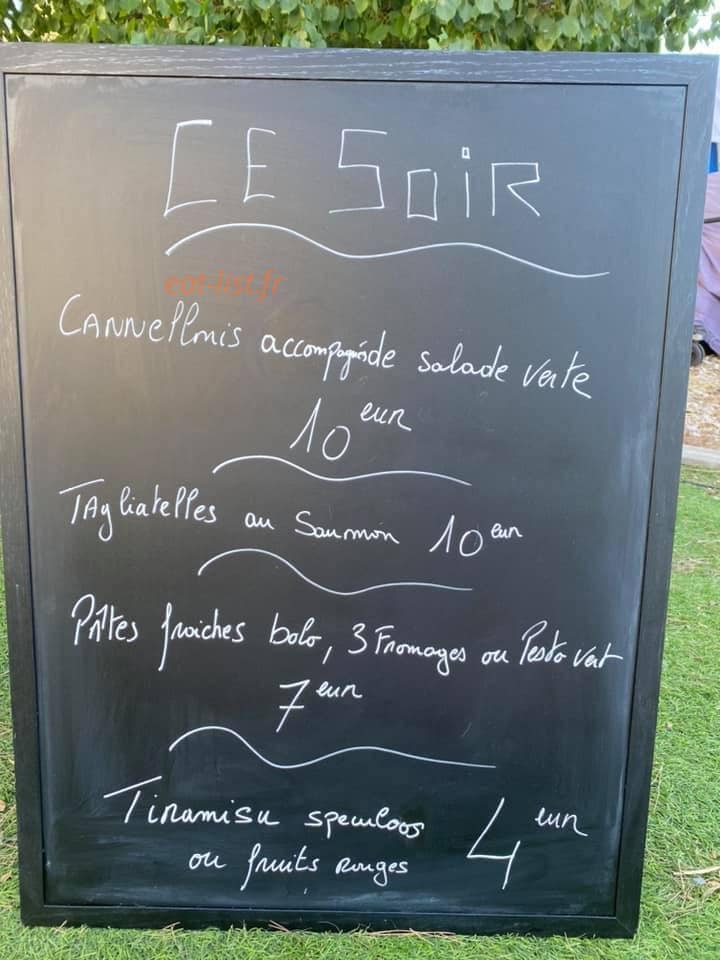 CE SOIR
eat-list.fr
CANNELLONIS accompagnés de salade verte
10 eur
TAgliatelles au Saumon 10 eur
Pâtes fraiches bolo, 3 Fromages ou Pesto vert
7 eur
Tiramisu speculoos 4 eur
ou fruits Rouges